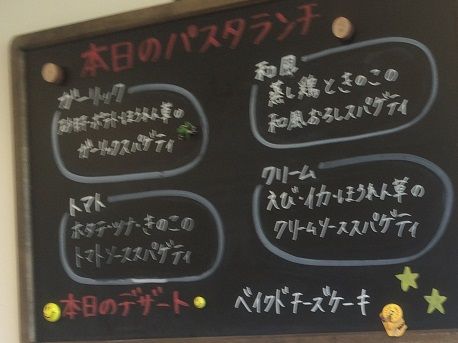 本日のパスタランチ
ガーリック
砂肝・ポテト・ほうれん草の
ガーリックスパゲティ
和風
蒸し鶏ときのこの
和風おろしスパゲティ
トマト
ホタテ・ツナ・きのこの
トマトソーススパゲティ
クリーム
えび・イカ・ほうれん草の
クリームソーススパゲティ
本日のデザート
ベイクドチーズケーキ